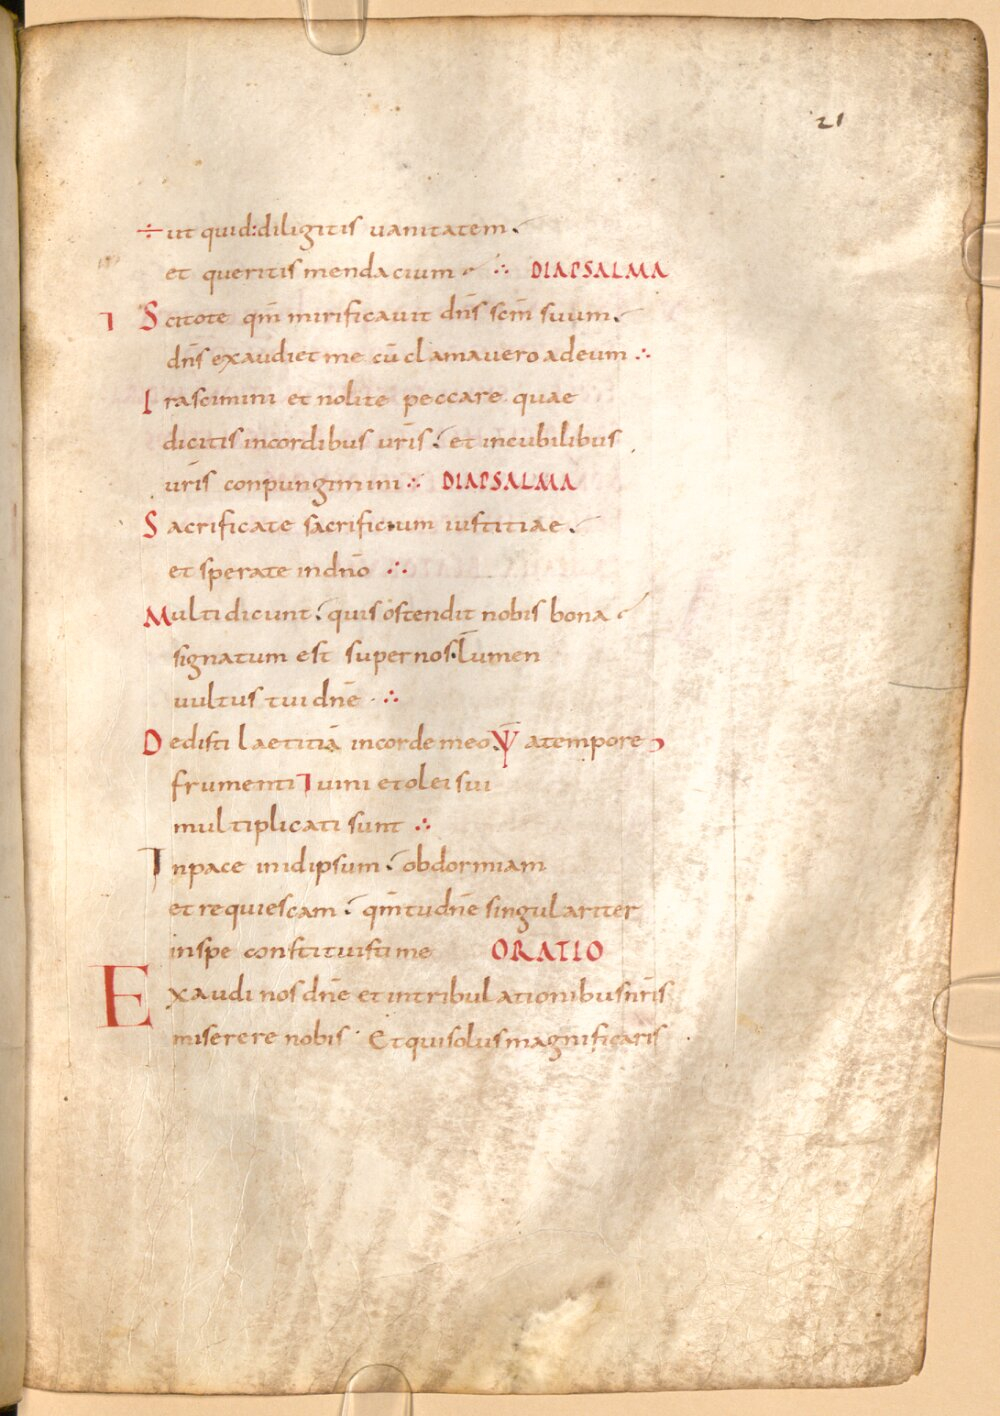 21
÷ ut quid: diligitis uanitatem.
et queritis mendacium ∴ DIAPSALMA
⁊ Scitote qm̄ mirificauit dn̄s sc̄m suum.
dn̄s exaudiet me cū clamauero adeum ∴
Irascimini et nolite peccare quae
dicitis incordibus ur̄is. et incubilibus
ur̄is conpungimini ∴ DIAPSALMA
Sacrificate sacrificium iustitiae.
et sperate indn̄o ∴
Multi dicunt. quis ostendit nobis bona
signatum est super nos. Lumen
uultus tui dn̄e ∴
Dedisti laetitiā incorde meo. Ψ atempore
frumenti ⁊ uini et olei sui
multiplicati sunt ∴
Inpace inidipsum. obdormiam
et requiescam. qm̄ tu dn̄e singulariter
inspe constituisti me ORATIO
Exaudi nos dn̄e et intribulationibus nr̄is
miserere nobis · Et qui solus magnificaris